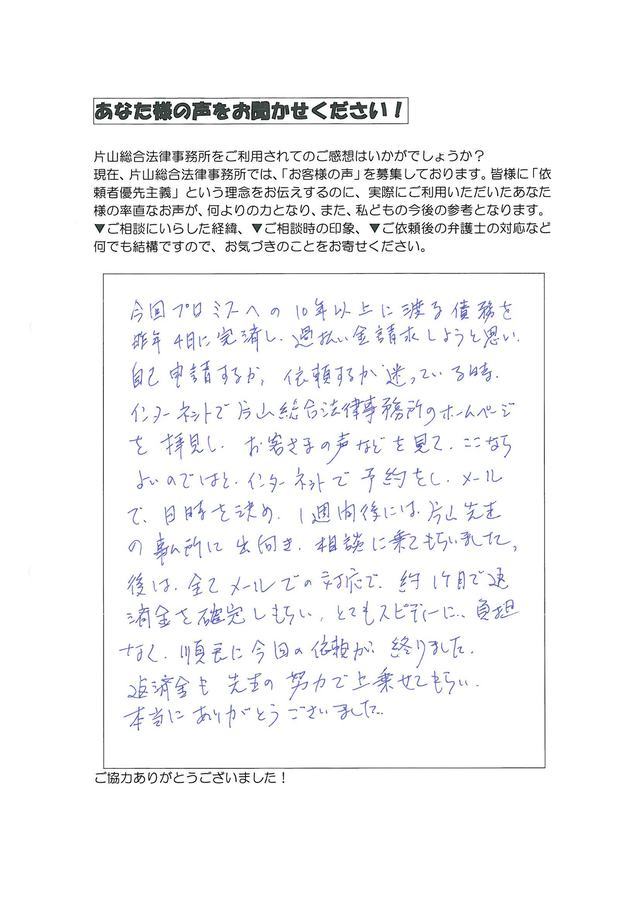 あなた様の声をお聞かせください！
片山総合法律事務所をご利用されてのご感想はいかがでしょうか？
現在、片山総合法律事務所では、「お客様の声」を募集しております。皆様に「依
頼者優先主義」という理念をお伝えするのに、実際にご利用いただいたあなた
様の率直なお声が、何よりの力となり、また、私どもの今後の参考となります。
▼ご相談にいらした経緯、▼ご相談時の印象、▼ご依頼後の弁護士の対応など
何でも結構ですので、お気づきのことをお寄せください。
今回プロミスへの10年以上に渡る債務を
昨年4月に完済し、過払い金請求しようと思い、
自己申請するか、依頼するか迷っている時、
インターネットで片山総合法律事務所のホームページ
を拝見し、お客さまの声などを見て、ここなら
よいのではと、インターネットで予約をし、メール
で、日時を決め、1週間後には、片山先生
の事ム所に出向き、相談に乗てもらいました。
後は、全てメールでの対応で、約1ケ月で返
済金を確定しもらい、とてもスピディーに、負担
なく、順長に今回の依頼が、終りました。
返済金も先生の努力で上乗せてもらい、
本当にありがとうございました。
ご協力ありがとうございました！